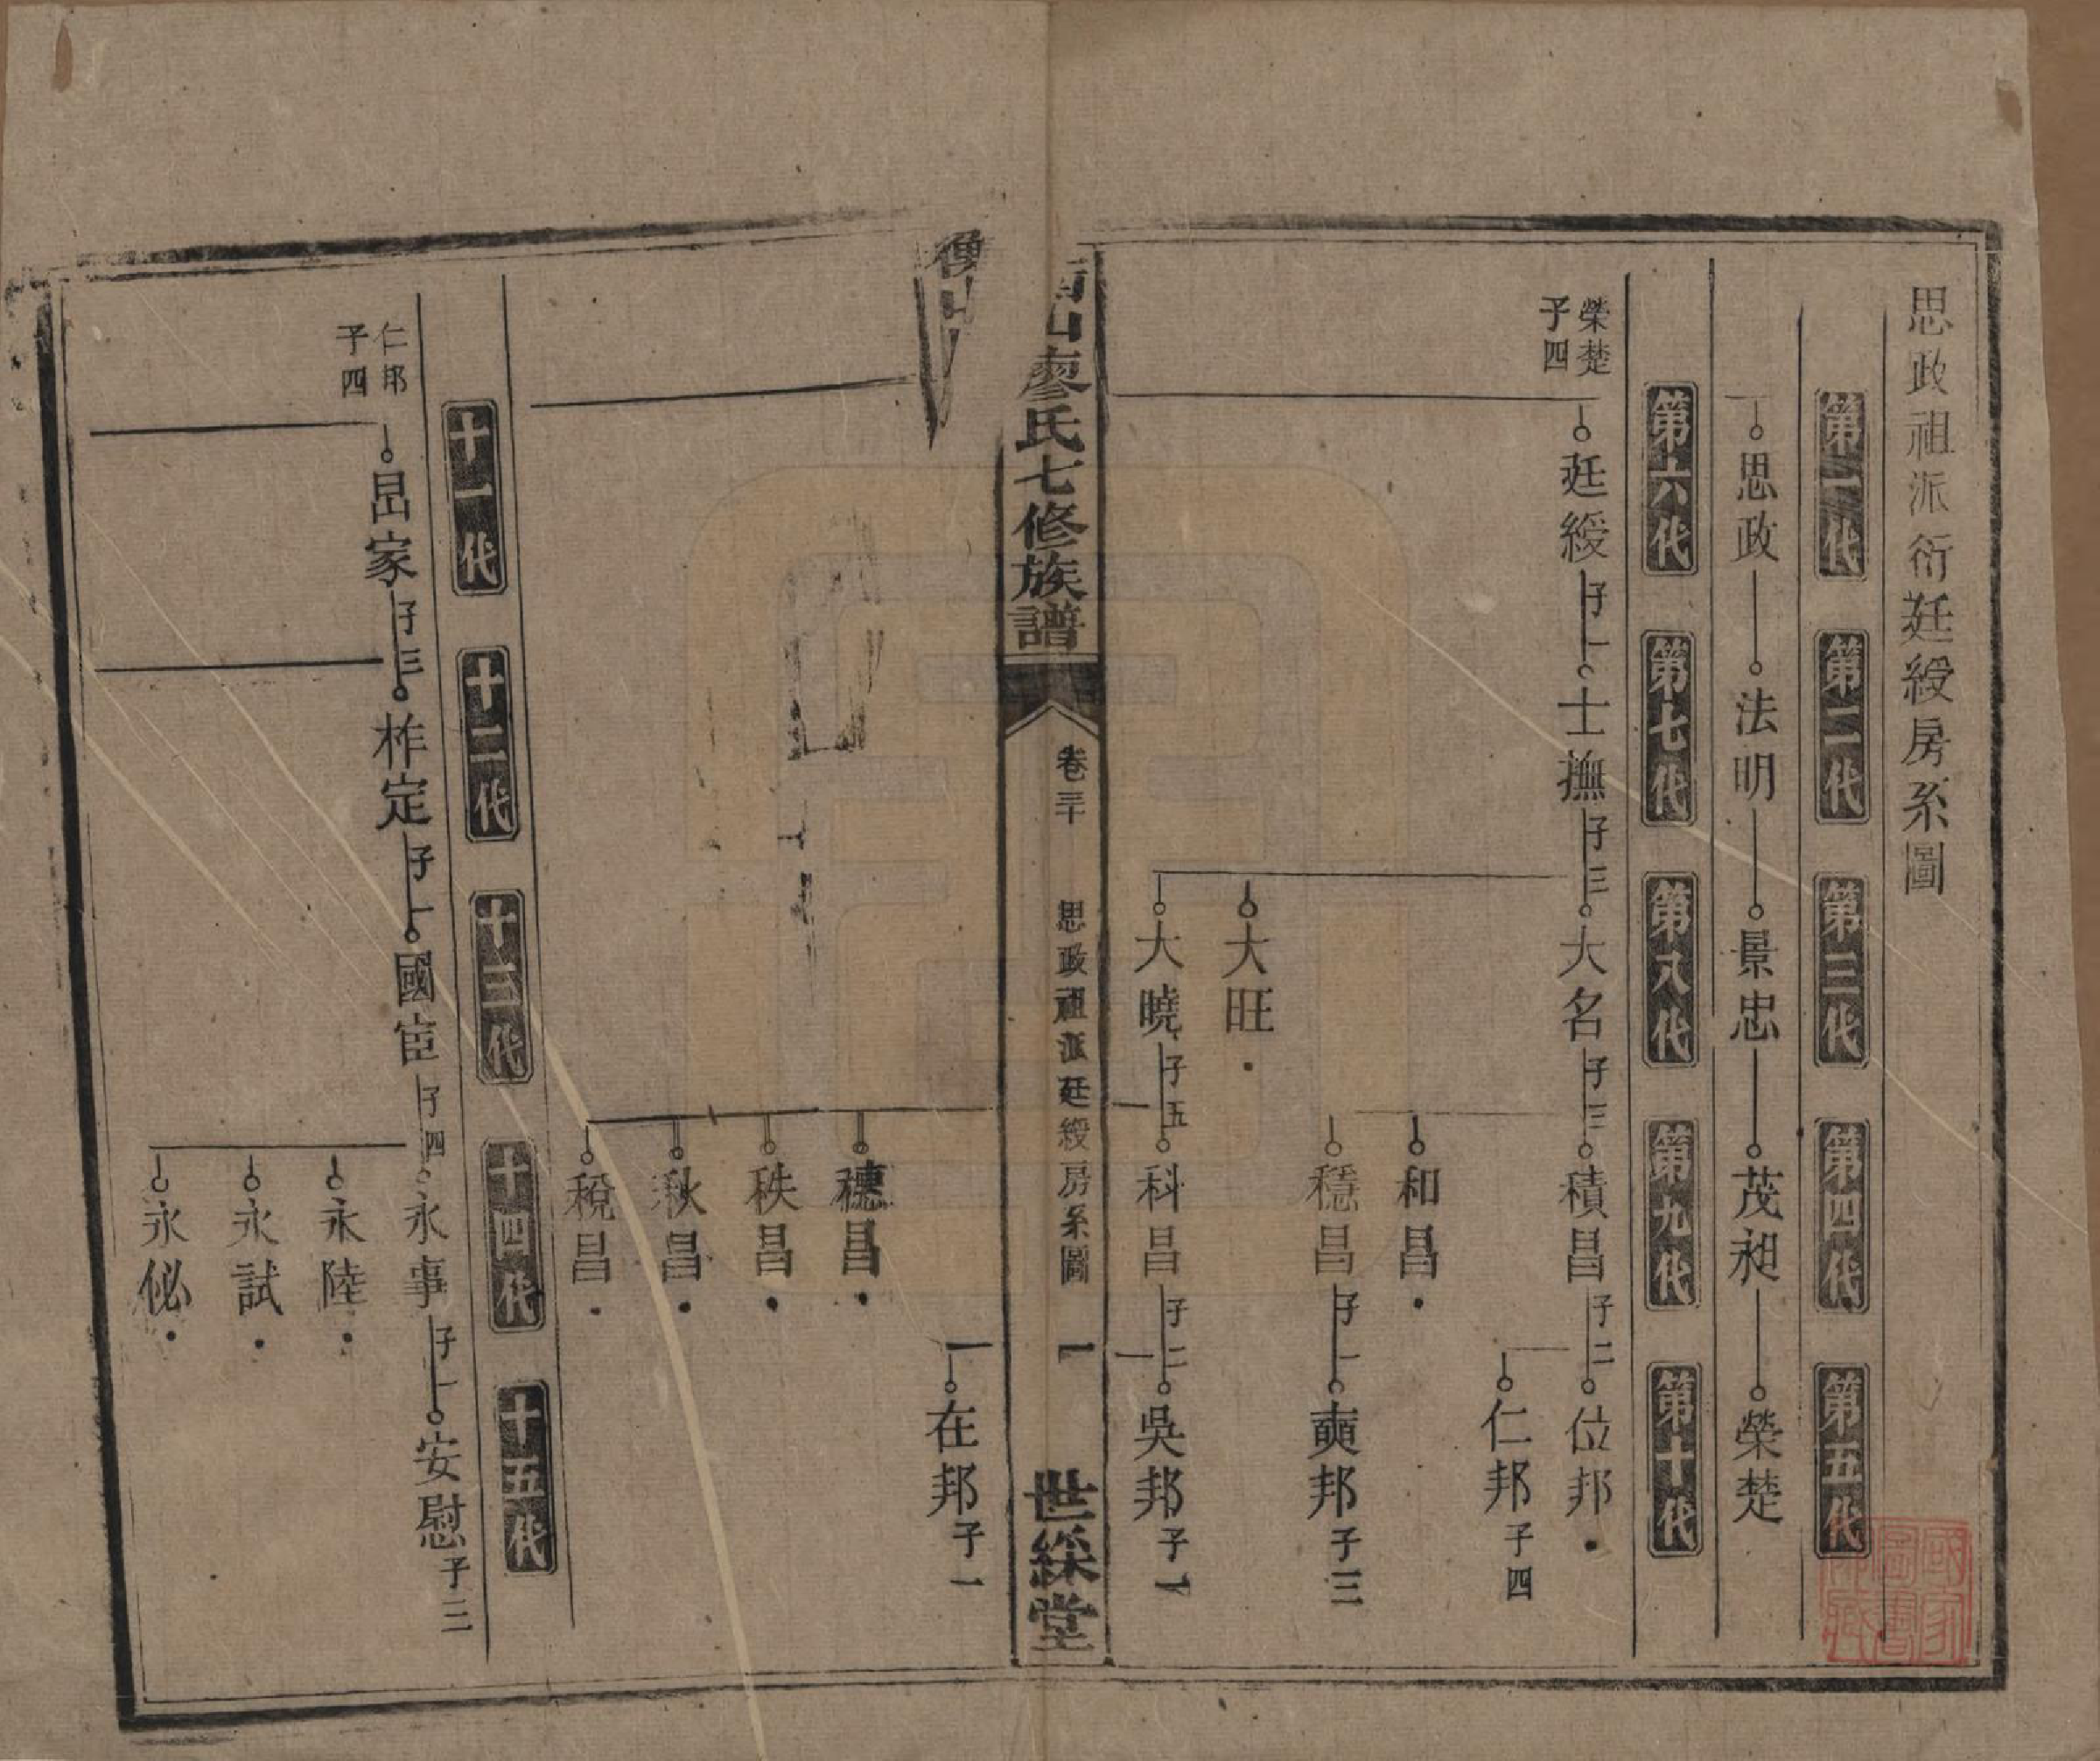 思政祖派衍廷綬房系圖
第一代 第二代 第三代 第四代 第五代
思政 法明 景忠 茂昶 榮楚
第六代 第七代 第八代 第九代 第十代
榮楚
子四
廷綬 子一 士撫 子三 大名 子三 積昌 子二 位邦
仁邦 子四
和昌
穩昌 子一 奭邦 子三
大旺
大曉 子五 科昌 子二 吳邦 子一
衡山廖氏七修族譜 卷三十 思政祖派廷綬房系圖 一 世綵堂
在邦 子一
穗昌
秩昌
秋昌
稅昌
十一代 十二代 十三代 十四代 十五代
仁邦
子四
昌家 子三 柞定 子一 國宦 子四 永事 子一 安慰 子三
永陸
永試
永佖
國家圖書館藏